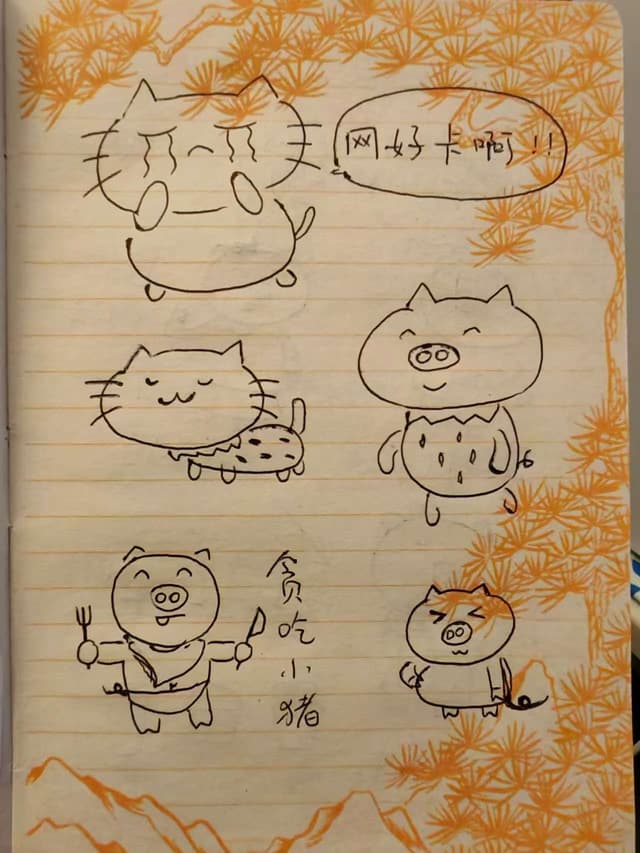 网好卡啊!!
贪吃小猪